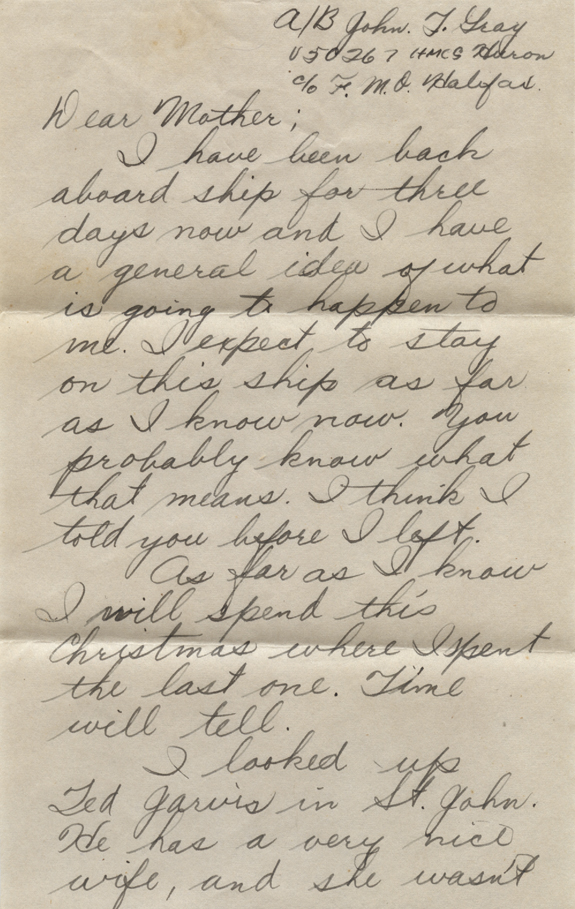 A/B John. T. Gray
V50267 HMCS Huron
c/o F. M.O. Halifax.
Dear Mother;
I have been back
aboard ship for three
days now and I have
a general idea of what
is going to happen to
me. I expect to stay
on this ship as far
as I know now. You
probably know what
that means. I think I
told you before I left.
As far as I know
I will spend this
Christmas where I spent
the last one. Time
will tell.
I looked up
Ted Jarvis in St. John.
He has a very nice
wife, and she wasn't